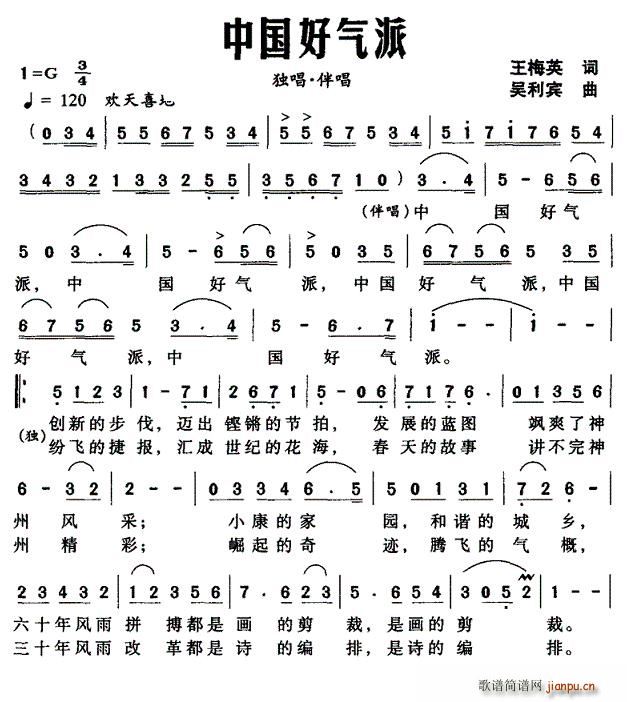 中国好气派
1=G 3/4
独唱·伴唱
王梅英 词
♩= 120 欢天喜地
吴利宾 曲
(0 3 4 | 5 5 6 7 5 3 4 | 5 5 6 7 5 3 4 | 5 1 7 1 7 6 5 4 |
3 4 3 2 1 3 3 2 5 5 | 3 5 6 7 1 0) 3 . 4 | 5 - 6 5 6 |
(伴唱)中 国 好 气
5 0 3 . 4 | 5 - 6 5 6 | 5 0 3 5 | 6 7 5 6 5 3 5 |
派, 中 国 好 气 派, 中国 好 气 派, 中国
6 7 5 6 5 3 . 4 | 5 - 6 - 7 - | 1 - - | 1 - - |
好 气 派, 中 国 好 气 派。
5 1 2 3 | 1 - 7 1 | 2 6 7 1 | 5 - 0 6 | 7 1 7 6 . | 0 1 3 5 6
(独) 创新的步 伐, 迈出 铿锵的节 拍, 发 展的蓝图 飒爽了神
纷飞的捷 报, 汇成 世纪的花 海, 春 天的故事 讲不完神
6 - 3 2 | 2 - - | 0 3 3 3 6 . 5 | 5 0 1 3 1 | 2 - - |
州 风 采; 小康的家 园, 和谐的 城 乡,
州 精 彩; 崛起的奇 迹, 腾飞的 气 概,
2 3 4 3 2 | 1 2 3 5 6 | 7 . 6 2 3 | 5 . 6 5 4 | 3 0 5 2 | 1 - - |
六十年风雨 拼 搏都是 画 的剪 裁, 是画的剪 裁。
三十年风雨 改 革都是 诗 的编 排, 是诗的编 排。
歌谱简谱网
jianpu.cn